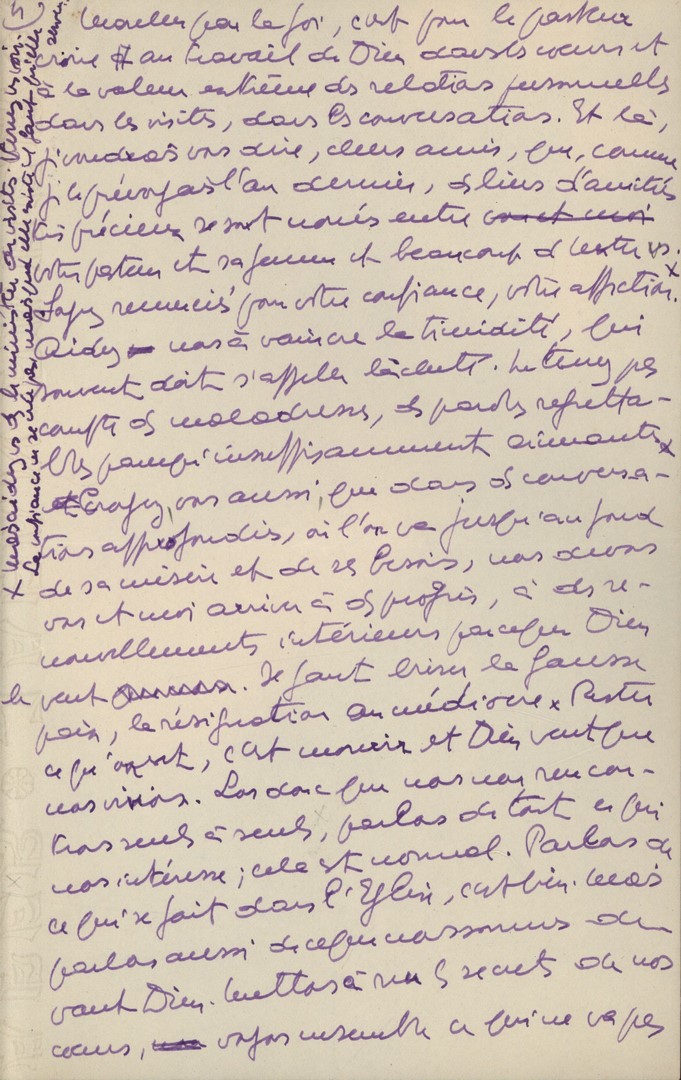 5)
Marcher par la foi, c'est pour le pasteur
croire # au travail de Dieu dans les cœurs et
à la valeur extrême des relations personnelles
dans les visites, dans les conversations. Et là,
je voudrais vous dire, chers amis, que, comme
je le prévoyais l'an dernier, des liens d'amitiés
très précieux se sont noués entre vous et moi
votre pasteur et sa femme et beaucoup d'entre vs.
Soyez remerciés pour votre confiance, votre affection. x
Aidez - nous à vaincre la timidité, qui
souvent doit s'appeler lâcheté. Ne tenez pas
compte des maladresses, des paroles regretta-
bles parce qu'insuffisamment aimantes x
et Croyez, vous aussi, que dans des conversa-
tions approfondies, où l'on va jusqu'au fond
de sa misère et de ses besoins, nous devons
vous et moi arriver à des progrès, à des re-
nouvellements intérieurs parce que Dieu
le veut. Il faut briser la fausse
paix, la résignation au médiocre x Rester
ce qu'on est, c'est mourir et Dieu veut que
nous vivions. Lors donc que nous nous rencon-
trons seuls à seuls, parlons de tout ce qui
nous intéresse ; cela est normal. Parlons de
ce qui se fait dans l'Eglise, c'est bien. Mais
parlons aussi de ce que nous sommes de-
vant Dieu. Mettons à nu les secrets de nos
cœurs, voyons ensemble ce qui ne va pas
x Mais aidez vs ds le ministère des visites.
La confiance ne se crée pas, mais quand elle existe il faut